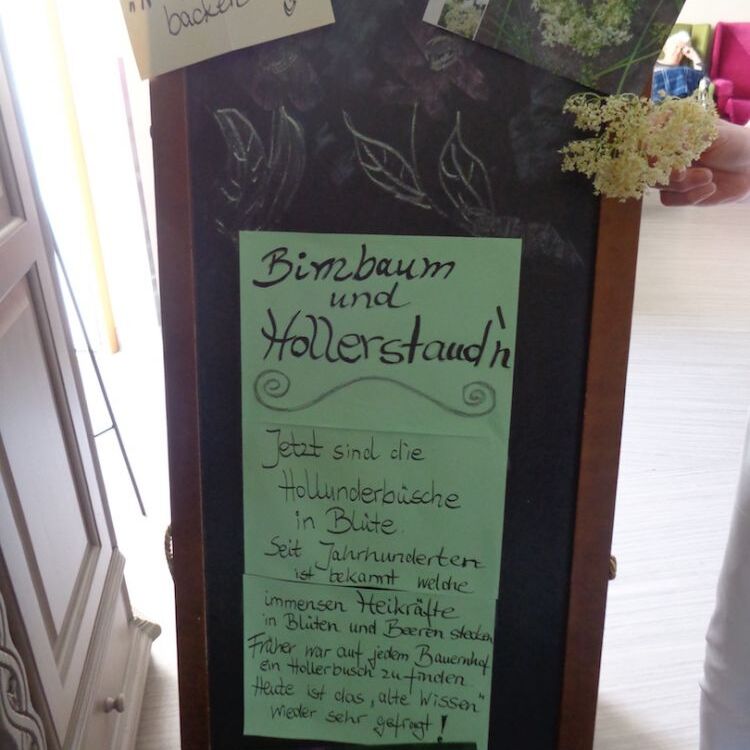 backen
Birnbaum
und
Hollerstaud'n
Jetzt sind die
Hollunderbüsche
in Blüte.
Seit Jahrhunderten
ist bekannt welche
immensen Heikräfte
in Blüten und Beeren stecken
Früher war auf jedem Bauernhof
ein Hollerbusch zu finden.
Heute ist das „alte Wissen"
wieder sehr gefragt!